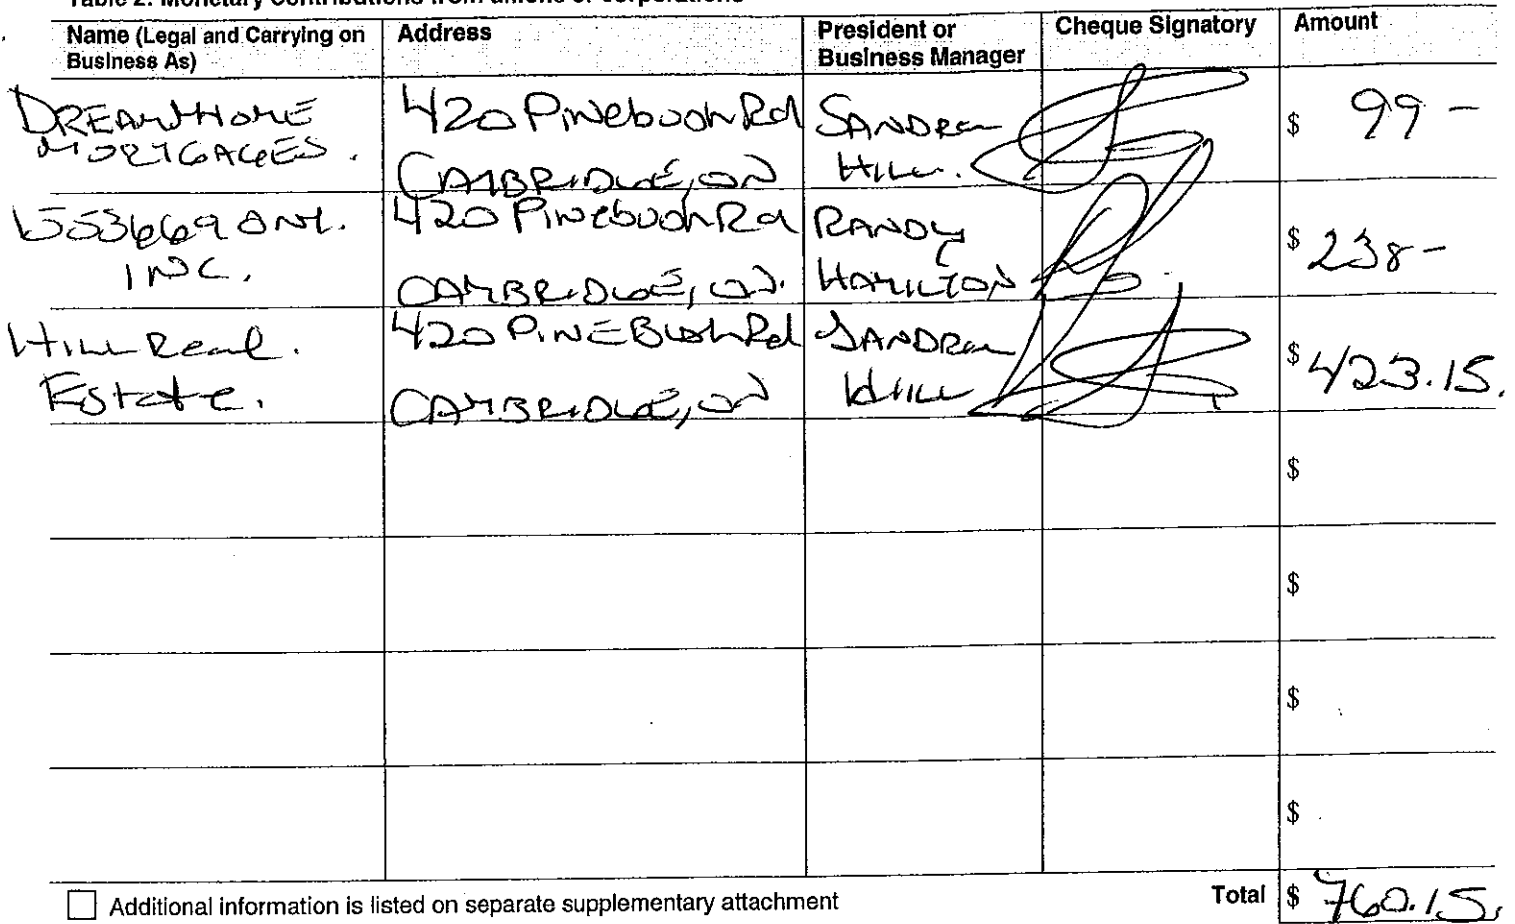 Table 2: Monetary contributions from unions or corporations
Name (Legal and Carrying on Business As) Address President or Business Manager Cheque Signatory Amount
DREAMHOME MORTGAGES. 420 Pinebush Rd CAMBRIDGE, ON SANDRA HILL. $ 99 -
1553669 ONT. INC. 420 Pinebush Rd CAMBRIDGE, ON. RANDY HAMILTON $ 238 -
HILL Real. Estate. 420 PINEBush Rd CAMBRIDGE, ON SANDRA HILL $ 423.15.
$
$
$
$
Additional information is listed on separate supplementary attachment Total $ 760.15.